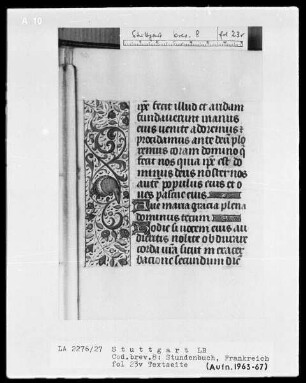 A 10
Stuttgart brev. 8 fol 23r
ip̃e fecit illud et aridam
fundaverunt manus
eius venite adoremus et
procidamus ante deũ plo
remus coram domino q̃
fecit nos quia ip̃e est do
minus deus noster nos
aut̃ populus eius et o
ves pascue eius
Aue maria gracia plena
dominus tecum
Hodie si vocem eius au
dieritis nolite obdurare
corda vr̃a sicut in exacer
bacione secundum die
LA 2276/27 Stuttgart LB
Cod.brev.8: Stundenbuch, Frankreich
fol 23v Textseite
(Aufn.1963-67)